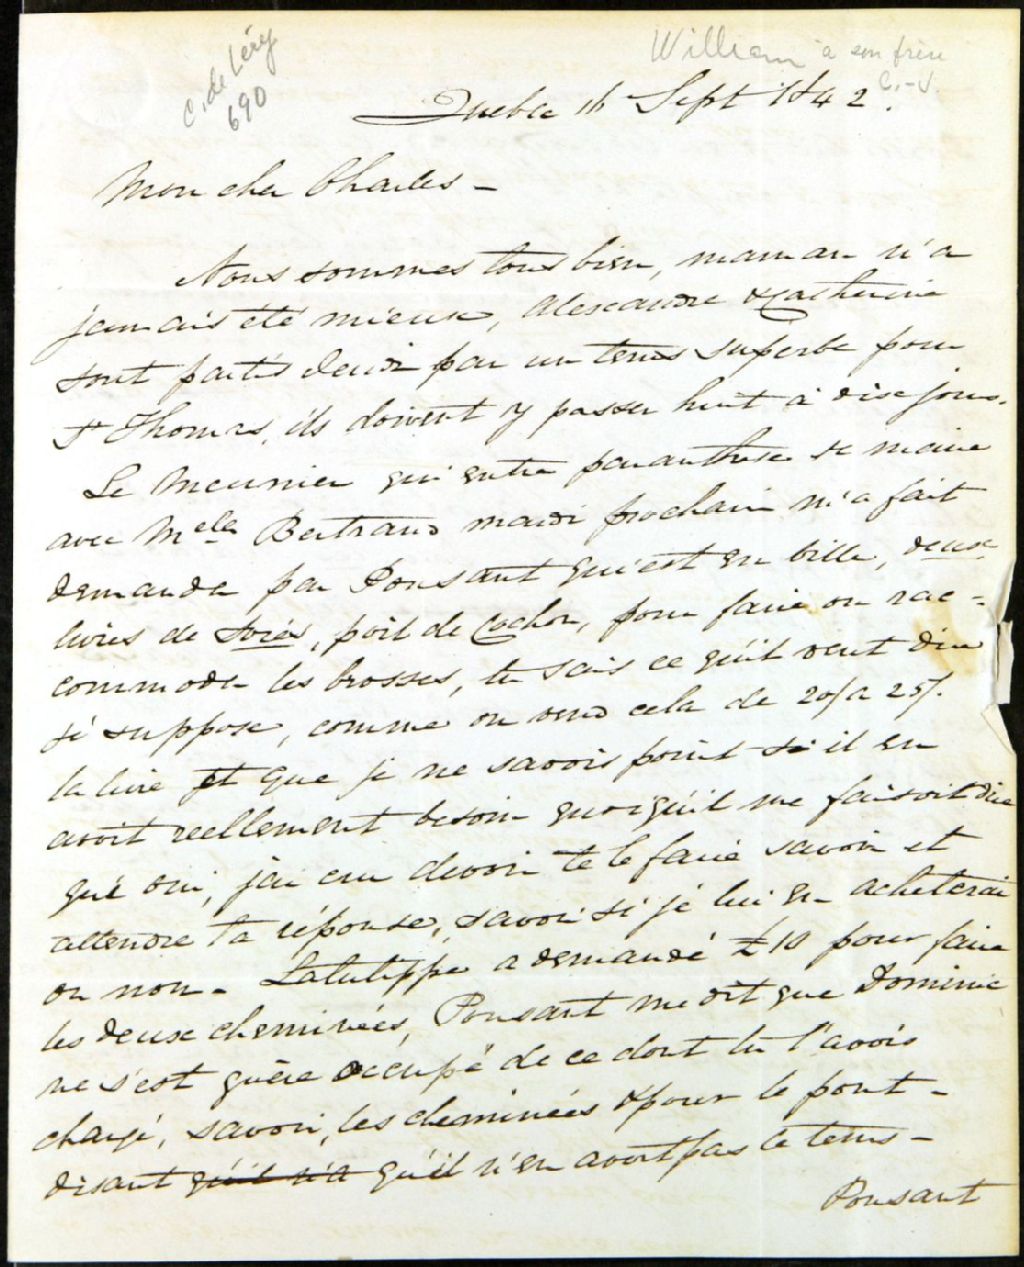 C. de Léry
690
William à son frère
C.-J.
Quebec 16 Sept 1842.
Mon cher Charles -
Nous sommes tous bien, maman n'a
jamais été mieux, Alexandre & Catherine
sont partis Jeudi par un tems superbe pour
St Thomas, ils doivent y passer huit à dix jours.
Le Meunier qui entre paranthese se marie
avec Melle Bertrand mardi prochain m'a fait
demander par Ponsant qui est en ville, deux
livres de Soies, poil de Cochon, pour faire ou rac-
commoder les brosses, tu sais ce qu'il veut dire
je suppose, comme on vend cela de 20/ a 25/.
la livre et que je ne savois point si il en
avoit reellement besoin quoiqu'il me faisoit dire
que oui, j'ai cru devoir te le faire savoir et
attendre ta réponse, savoir si je lui en acheterai
ou non - Latulippe a demandé £10 pour faire
les deux cheminées, Ponsant me dit que Dominic
ne s'est guère occupé de ce dont tu l'avois
chargé, savoir, les cheminées & pour le pont -
disant qu'il n'a qu'il n'en avoit pas le tems -
Ponsant